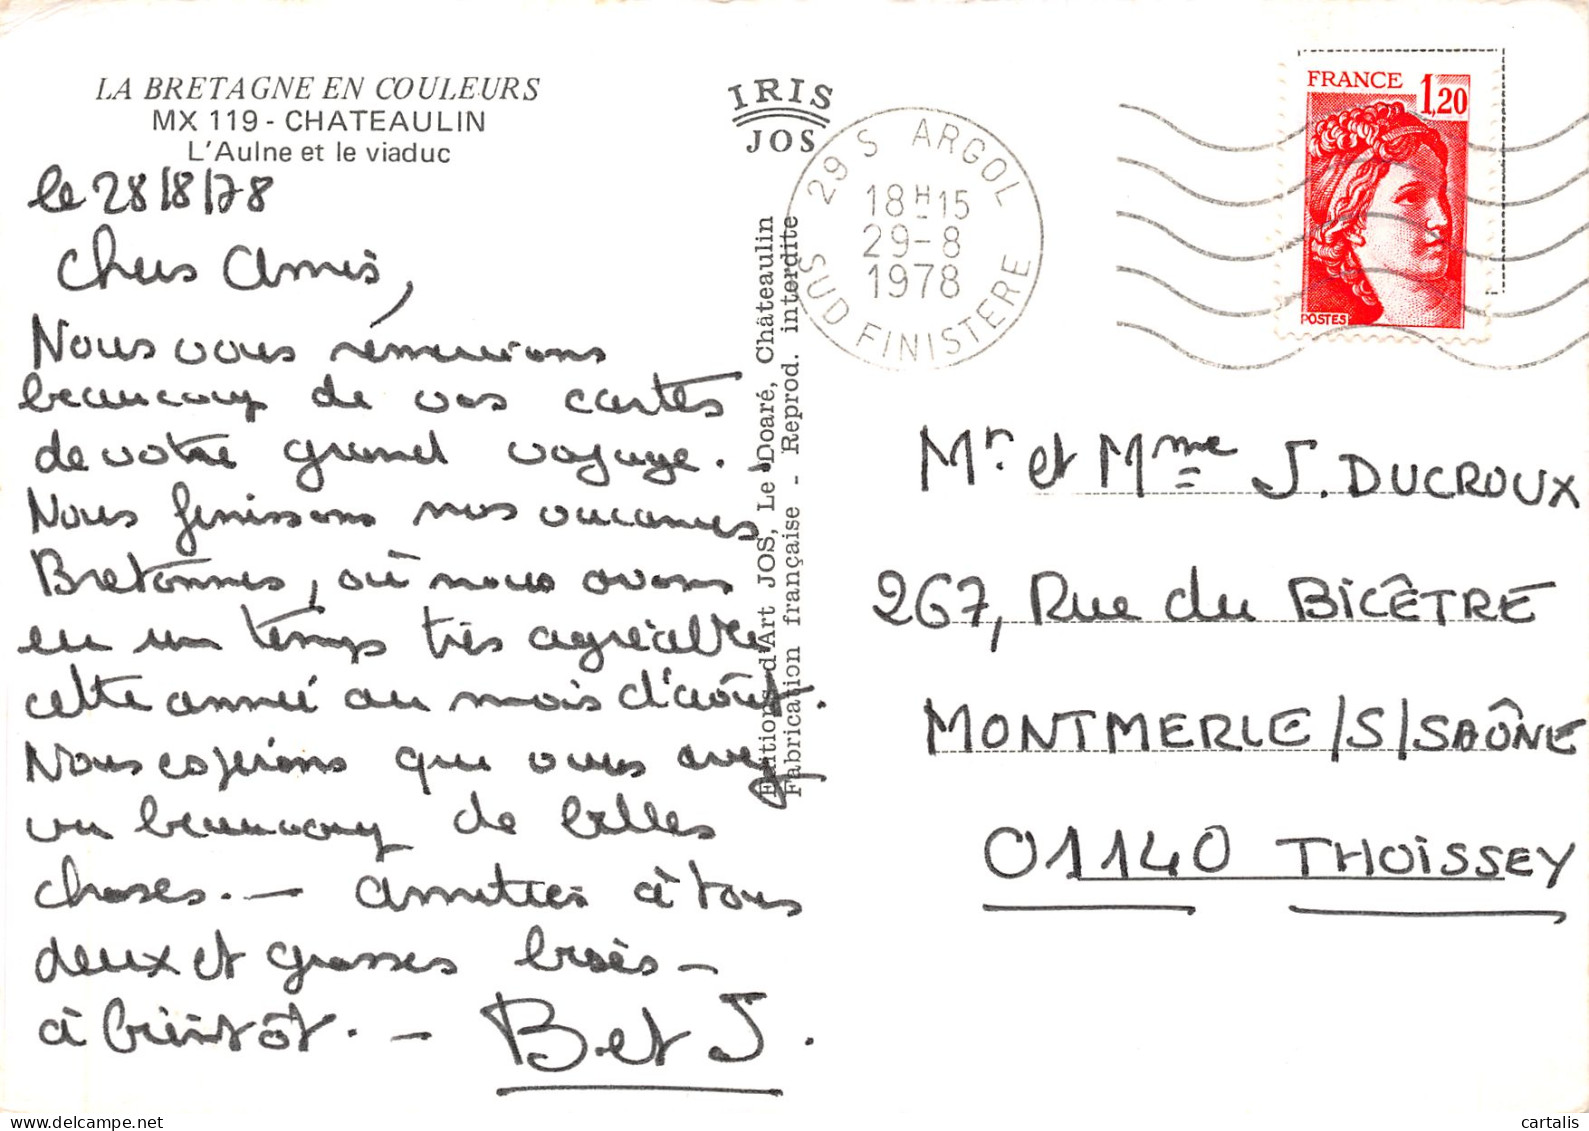 LA BRETAGNE EN COULEURS
MX 119 - CHATEAULIN
L'Aulne et le viaduc
le 28/8/78
Chers Amis,
Nous vous remercions
beaucoup de vos cartes
de votre grand voyage.
Nous finissons nos vacances
Bretonnes, où nous avons
eu un temps très agréable
cette année au mois d'août.
Nous espérons que vous avez
vu beaucoup de belles
choses. — Amitiés à tous
deux et grosses bises —
à bientôt. — B et J.
IRIS
JOS
Editions d'Art JOS, Le Doaré, Châteaulin
Fabrication française - Reprod. interdite
29 S ARGOL
18H15
29-8
1978
SUD FINISTERE
FRANCE 1,20
POSTES
Mr. et Mme J. DUCROUX
267, Rue du BICÊTRE
MONTMERLE /S/SAÔNE
01140 THOISSEY
cartalis